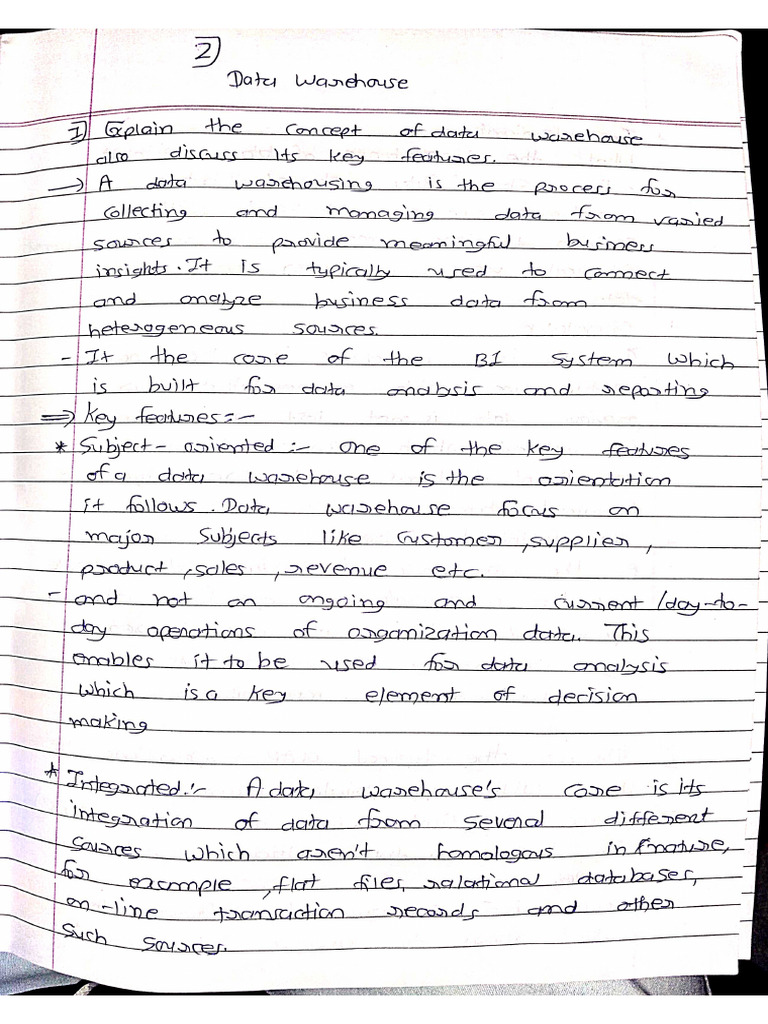 2]
Data Warehouse
1] Explain the concept of data warehouse
also discuss its key features.
→ A data warehousing is the process for
collecting and managing data from varied
sources to provide meaningful business
insights. It is typically used to connect
and analyze business data from
heterogeneous sources.
- It the core of the BI system which
is built for data analysis and reporting
⇒ Key features:-
* Subject-oriented :- one of the key features
of a data warehouse is the orientation
it follows. Data warehouse focus on
major subjects like customer, supplier,
product, sales, revenue etc.
- and not on ongoing and current/day-to-
day operations of organization data. This
enables it to be used for data analysis
which is a key element of decision
making
* Integrated:- A data warehouse's core is its
integration of data from several different
sources which aren't homologous in nature,
for example, flat files, ralational databases,
on-line transaction records and other
such sources.